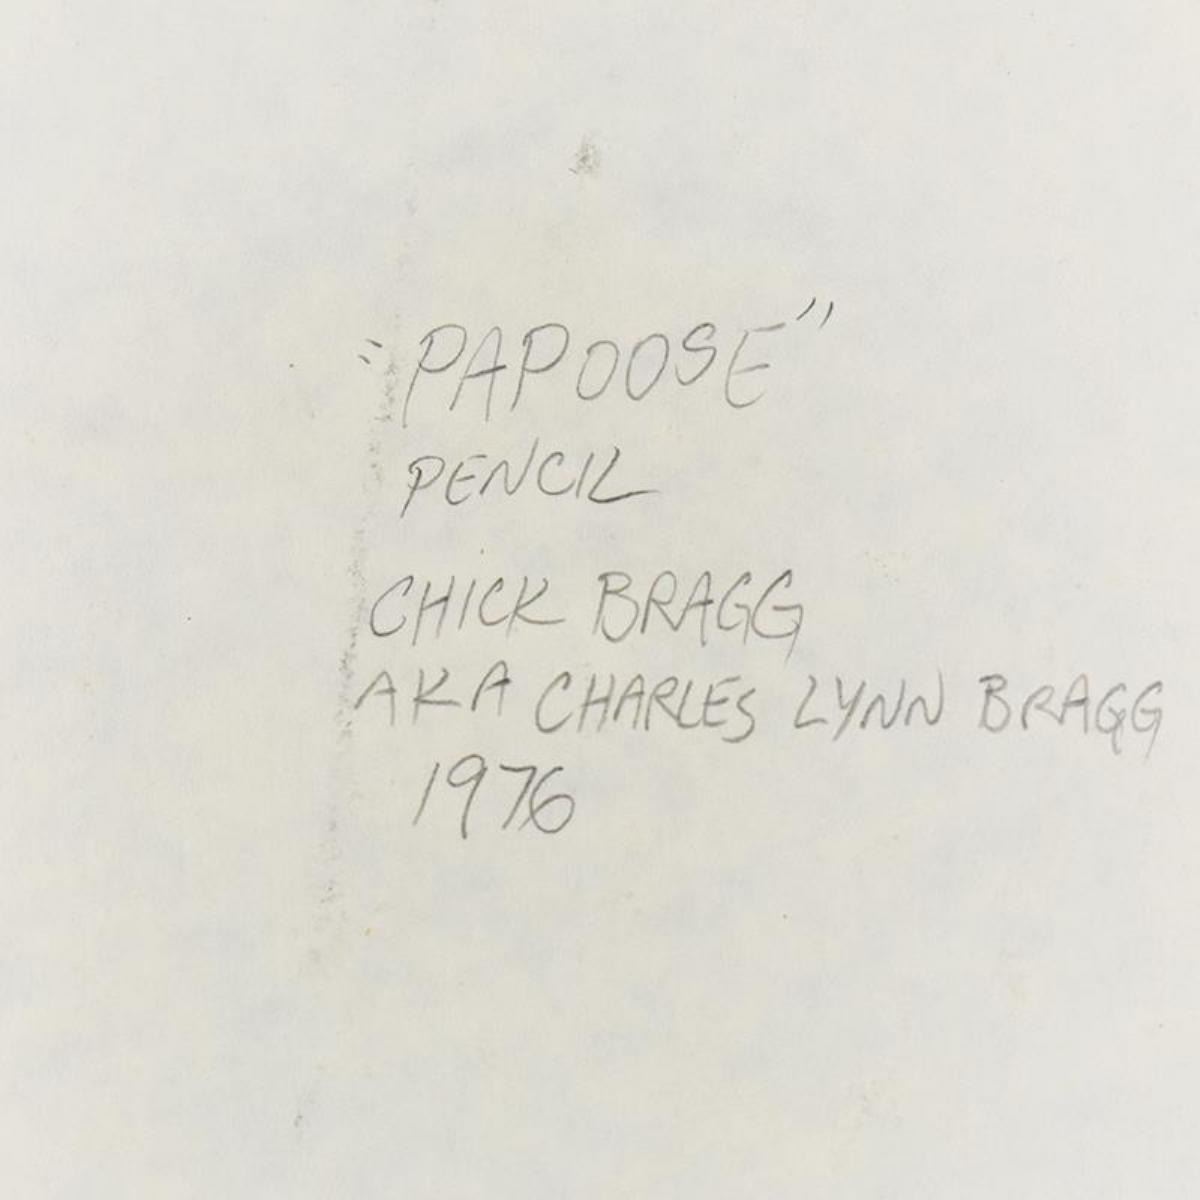 "PAPOOSE"
PENCIL
CHICK BRAGG
AKA CHARLES LYNN BRAGG
1976